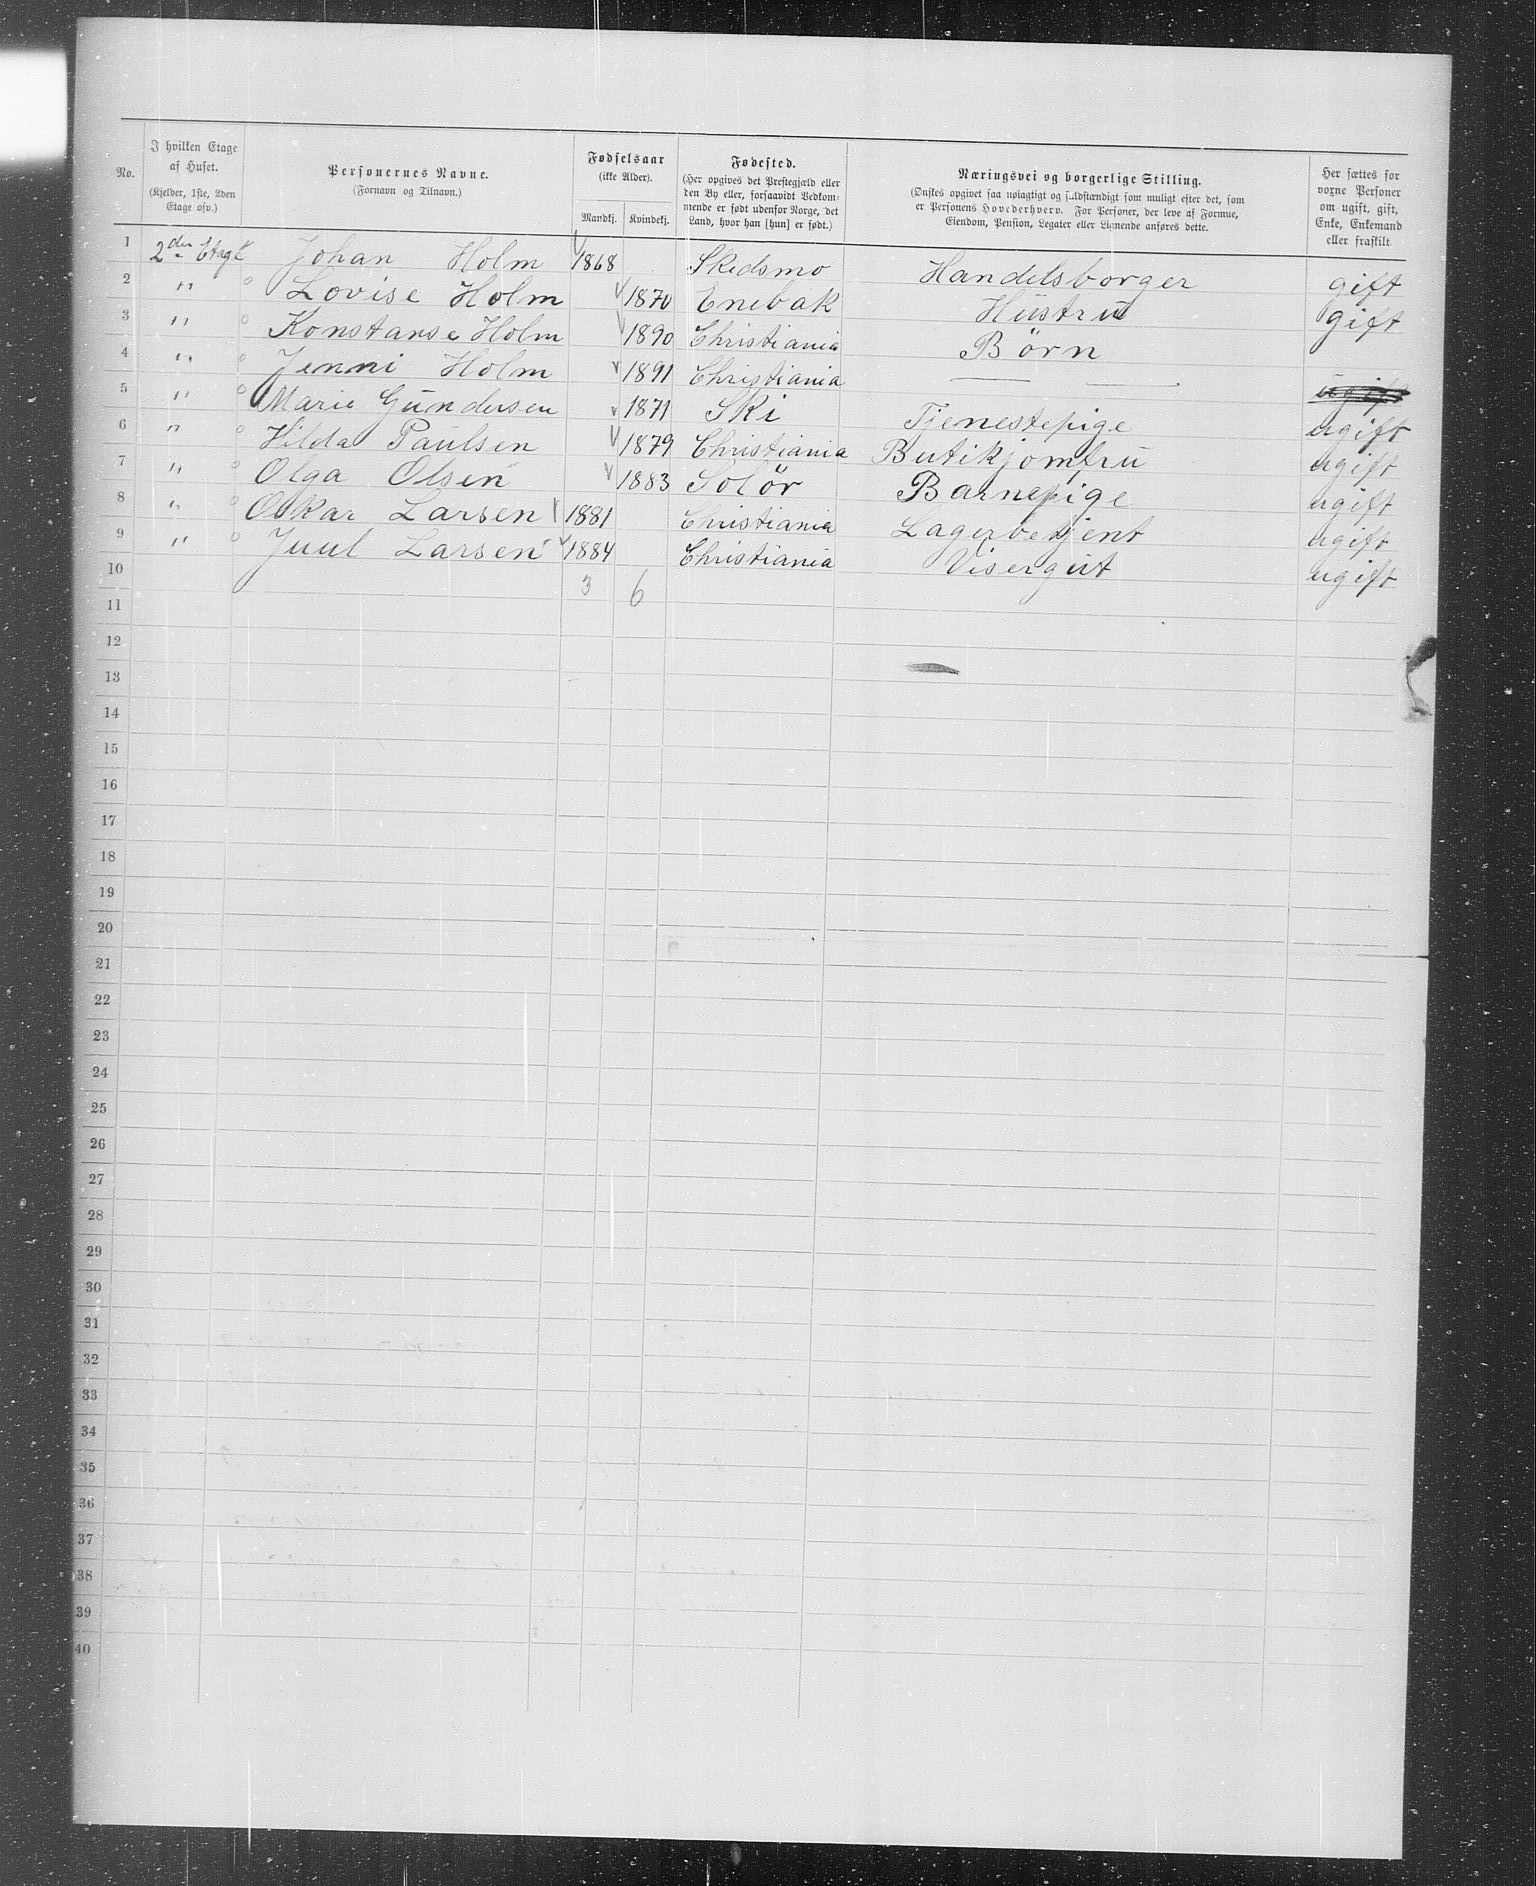 No.	I hvilken Etage af Huset. (Kjelder, 1ste, 2den Etage osv.)	Personernes Navne. (Fornavn og Tilnavn.)	Fødselsaar (ikke Alder). Mandkj. Kvindekj.	Fødested. (Her opgives det Prestegjæld eller den By eller, forsaavidt Vedkommende er født udenfor Norge, det Land, hvor han [hun] er født.)	Næringsvei og borgerlige Stilling. (Ønskes opgivet saa nøiagtigt og fuldstændigt som muligt efter det, som er Personens Hovederhverv. For Personer, der leve af Formue, Eiendom, Pension, Legater eller Lignende anføres dette.	Her sættes for voxne Personer om ugift, gift, Enke, Enkemand eller fraskilt.
1 2den Etage Johan Holm 1868 Skedsmo Handelsborger gift
2 " Lovise Holm 1870 Enebak Hustru gift
3 " Konstanse Holm 1890 Christiania Börn
4 " Jenni Holm 1891 Christiania — — ugift
5 " Marie Gundersen 1871 Ski Tjenestepige ugift
6 " Hilda Paulsen 1879 Christiania Butikjomfru ugift
7 " Olga Olsen 1883 Solör Barnepige ugift
8 " Oskar Larsen 1881 Christiania Lagerbetjent ugift
9 " Juul Larsen 1884 Christiania Visergut ugift
10 3 6
11
12
13
14
15
16
17
18
19
20
21
22
23
24
25
26
27
28
29
30
31
32
33
34
35
36
37
38
39
40